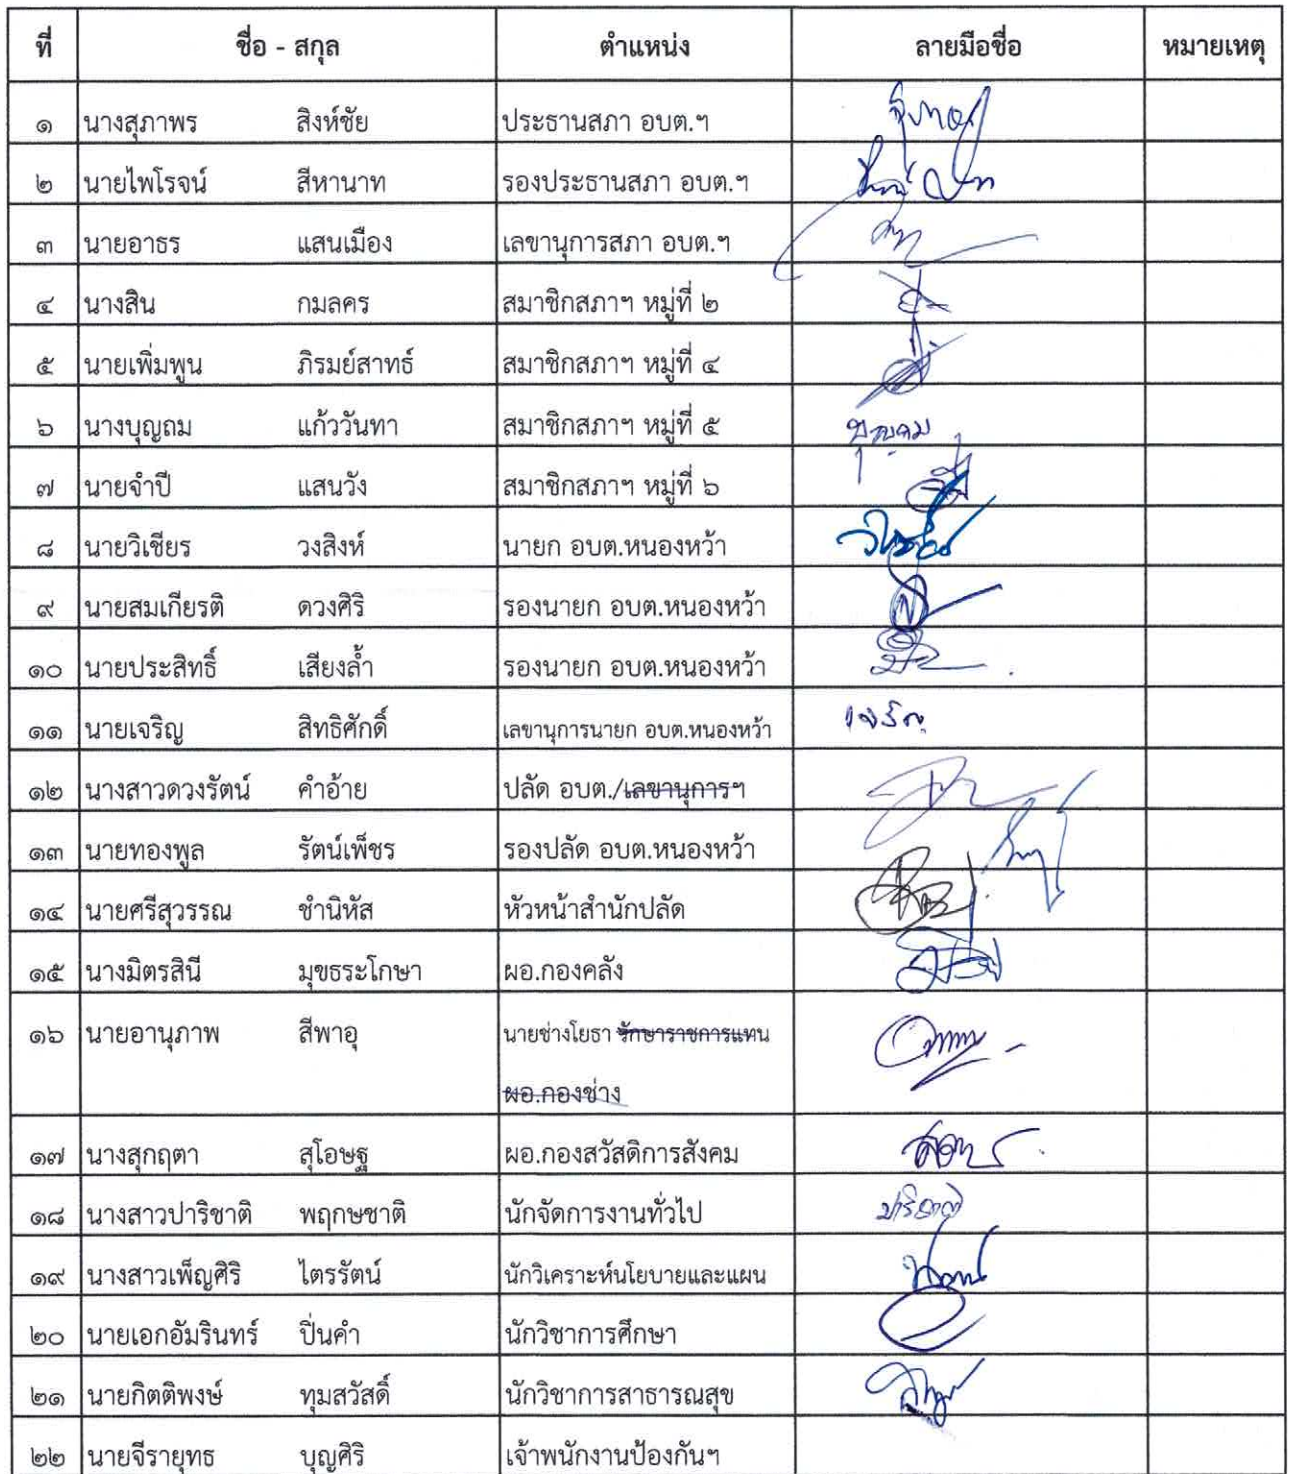 ที่ ชื่อ - สกุล ตำแหน่ง ลายมือชื่อ หมายเหตุ
๑ นางสุภาพร สิงห์ชัย ประธานสภา อบต.ฯ
๒ นายไพโรจน์ สีหานาท รองประธานสภา อบต.ฯ
๓ นายอาธร แสนเมือง เลขานุการสภา อบต.ฯ
๔ นางสิน กมลคร สมาชิกสภาฯ หมู่ที่ ๒
๕ นายเพิ่มพูน ภิรมย์สาทธ์ สมาชิกสภาฯ หมู่ที่ ๔
๖ นางบุญถม แก้ววันทา สมาชิกสภาฯ หมู่ที่ ๕
๗ นายจำปี แสนวัง สมาชิกสภาฯ หมู่ที่ ๖
๘ นายวิเชียร วงสิงห์ นายก อบต.หนองหว้า
๙ นายสมเกียรติ ดวงศิริ รองนายก อบต.หนองหว้า
๑๐ นายประสิทธิ์ เสียงล้ำ รองนายก อบต.หนองหว้า
๑๑ นายเจริญ สิทธิศักดิ์ เลขานุการนายก อบต.หนองหว้า เจริญ
๑๒ นางสาวดวงรัตน์ คำอ้าย ปลัด อบต./เลขานุการฯ
๑๓ นายทองพูล รัตน์เพ็ชร รองปลัด อบต.หนองหว้า
๑๔ นายศรีสุวรรณ ชำนิหัส หัวหน้าสำนักปลัด
๑๕ นางมิตรสินี มุขธระโกษา ผอ.กองคลัง
๑๖ นายอานุภาพ สีพาอุ นายช่างโยธา รักษาราชการแทน
ผอ.กองช่าง
๑๗ นางสุกฤตา สุโอษฐ ผอ.กองสวัสดิการสังคม
๑๘ นางสาวปาริชาติ พฤกษชาติ นักจัดการงานทั่วไป ปาริชาติ
๑๙ นางสาวเพ็ญศิริ ไตรรัตน์ นักวิเคราะห์นโยบายและแผน
๒๐ นายเอกอัมรินทร์ ปิ่นคำ นักวิชาการศึกษา
๒๑ นายกิตติพงษ์ ทุมสวัสดิ์ นักวิชาการสาธารณสุข
๒๒ นายจีรายุทธ บุญศิริ เจ้าพนักงานป้องกันฯ